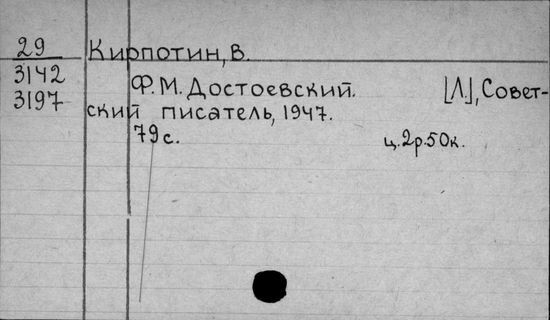 29 Кирпотин, В.
3142 Ф. М. Достоевский. [Л.], Совет-
3197 ский писатель, 1947.
79 с. ц. 2р. 50к.